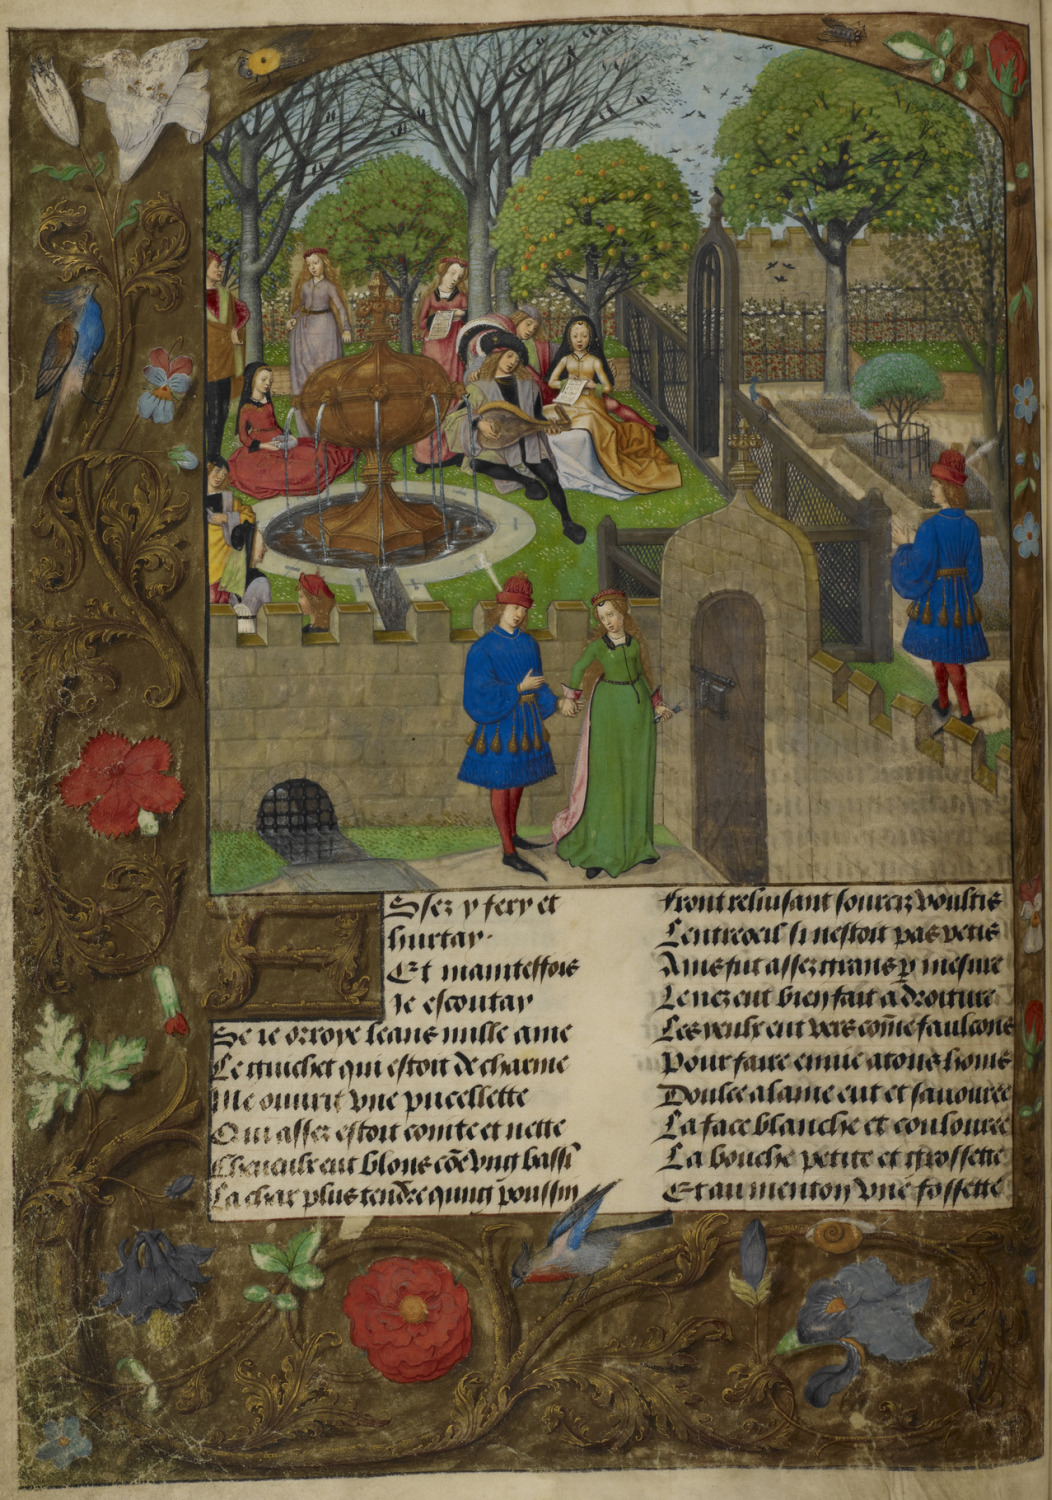 Assez y fery et
hurtay·
Et maintesfois
ie escoutay
Se ie orroye leans nulle ame
Le guichet qui estoit de charme
Me ouurit vne pucellette
Qui assez estoit cointe et nette
Cheueulx eut blons cõe vng bassĩ
La char plus tendre qung poussin
Front reluisant sourcilz voultis
Lentreoeil si nestoit pas petis
Ains fut assez grans p mesure
Le nez eut bien fait a droiture
Les yeulx eut vers cõme faulcons
Pour faire enuie a tous homs
Doulce alaine eut et sauouree
La face blanche et coulouree
La bouche petite et grossette
Et au menton vne fossette